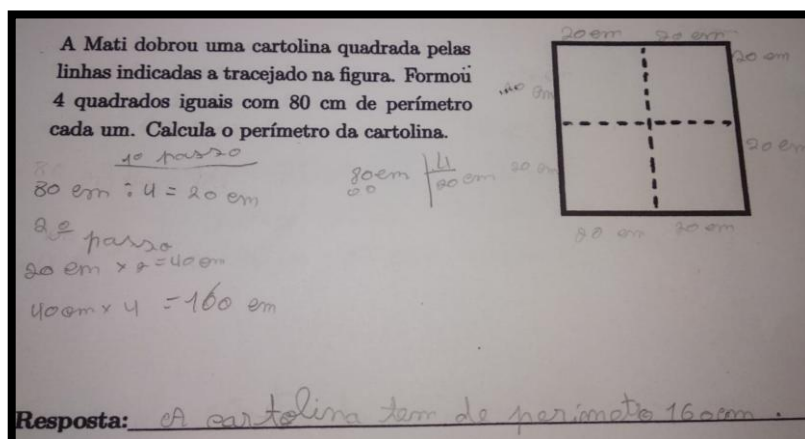 A Mati dobrou uma cartolina quadrada pelas
linhas indicadas a tracejado na figura. Formou
4 quadrados iguais com 80 cm de perímetro
cada um. Calcula o perímetro da cartolina.
20 cm 20 cm
20 cm
20 cm
20 cm
20 cm 20 cm
1º passo
80 cm : 4 = 20 cm
80 cm 4
00 20 cm
2º passo
20 cm x 2 = 40 cm
40 cm x 4 = 160 cm
Resposta: A cartolina tem de perimoto 160 cm.